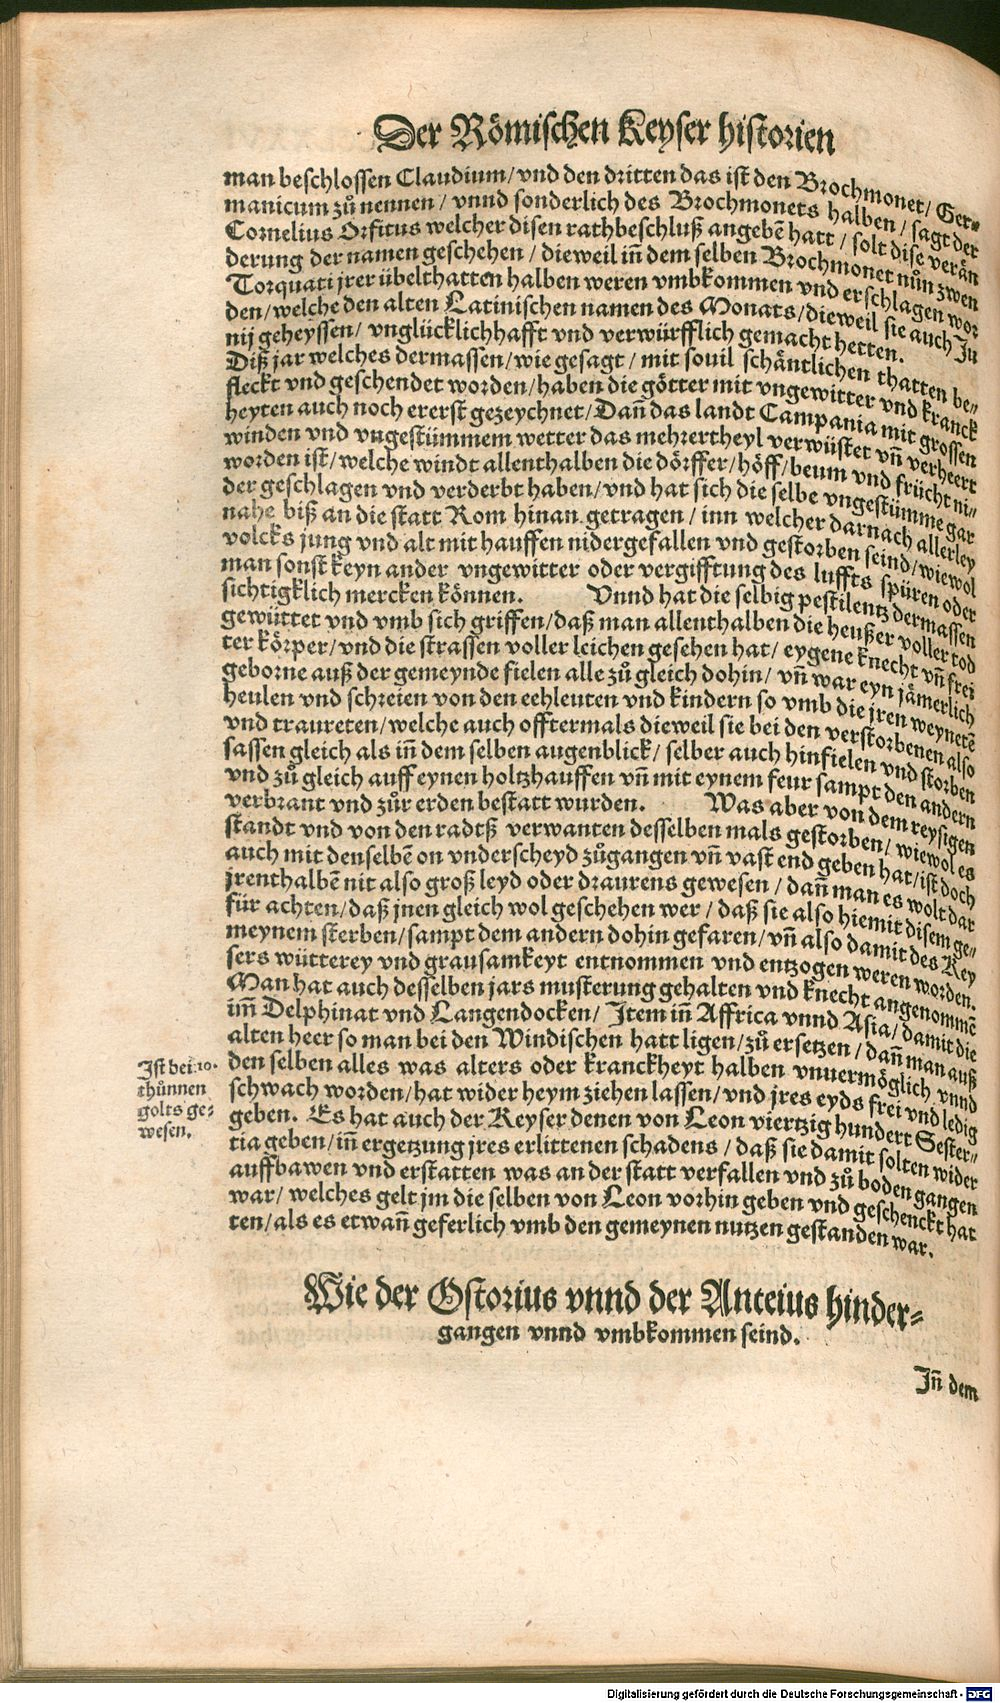 Der Römischen Keyser historien
man beschlossen Claudium/ vnd den dritten das ist den Brochmonet/ Ger⸗
manicum zů nennen / vnnd sonderlich des Brochmonets halben / sagt der
Cornelius Orfitus welcher disen rathbeschluß angebẽ hatt / solt dise verån
derung der namen geschehen / dieweil iñ dem selben Brochmonet nůn zwen
Torquati jrer übelthatten halben weren vmbkommen vnd erschlagen wor
den/ welche den alten Latinischen namen des Monats/ dieweil sie auch Ju
nij geheyssen/ vnglücklichhafft vnd verwürfflich gemacht hetten.
Diß jar welches dermassen/ wie gesagt / mit souil schåntlichen thatten be⸗
fleckt vnd geschendet worden/ haben die götter mit vngewitter vnd kranck
heyten auch noch ererst gezeychnet/ Dañ das landt Campania mit grossen
winden vnd vngestümmem wetter das mehrertheyl verwüstet vñ verheert
worden ist/ welche windt allenthalben die dörffer/ höff/ beum vnd frücht ni⸗
der geschlagen vnd verderbt haben/ vnd hat sich die selbe vngestümme gar
nahe biß an die statt Rom hinan getragen / inn welcher darnach allerley
volcks jung vnd alt mit hauffen nidergefallen vnd gestorben seind/ wiewol
man sonst keyn ander vngewitter oder vergifftung des luffts spüren oder
sichtigklich mercken können. Vnnd hat die selbig pestilentz dermassen
gewüttet vnd vmb sich griffen/ daß man allenthalben die heußer voller tod
ter körper/ vnd die strassen voller leichen gesehen hat/ eygene knecht vñ frei
geborne auß der gemeynde fielen alle zů gleich dohin/ vñ war eyn jåmerlich
heulen vnd schreien von den eehleuten vnd kindern so vmb die jren weynetẽ
vnd traureten/ welche auch offtermals dieweil sie bei den verstorbenen also
sassen gleich als iñ dem selben augenblick/ selber auch hinfielen vnd storben
vnd zů gleich auff eynen holtzhauffen vñ mit eynem feur sampt den andern
verbrant vnd zůr erden bestatt wurden. Was aber von dem reysigen
standt vnd von den radtß verwanten desselben mals gestorben/ wiewol es
auch mit denselbẽ on vnderscheyd zůgangen vñ vast end geben hat/ ist doch
jrenthalbẽ nit also groß leyd oder draurens gewesen / dañ man es wolt dar
für achten/ daß jnen gleich wol geschehen wer / daß sie also hiemit disem ge⸗
meynem sterben/ sampt dem andern dohin gefaren/ vñ also damit des Key
sers wütterey vnd grausamkeyt entnommen vnd entzogen weren worden.
Man hat auch desselben jars musterung gehalten vnd knecht angenommẽ
im̃ Delphinat vnd Langendocken/ Item iñ Affrica vnnd Asia/ damit die
alten heer so man bei den Windischen hatt ligen/ zů ersetzen / dañ man auß
den selben alles was alters oder kranckheyt halben vnuermöglich vnnd
schwach worden/ hat wider heym ziehen lassen/ vnd jres eyds frei vnd ledig
geben. Es hat auch der Keyser denen von Leon viertzig hundert Sester⸗
tia geben/ iñ ergetzung jres erlittenen schadens / daß sie damit solten wider
auffbawen vnd erstatten was an der statt verfallen vnd zů boden gangen
war/ welches gelt jm die selben von Leon vorhin geben vnd geschenckt hat
ten/ als es etwañ geferlich vmb den gemeynen nutzen gestanden war.
Ist bei 10.
thünnen
golts ge⸗
wesen.
Wie der Ostorius vnnd der Anteius hinder⸗
gangen vnnd vmbkommen seind.
Iñ dem
Digitalisierung gefördert durch die Deutsche Forschungsgemeinschaft - DFG